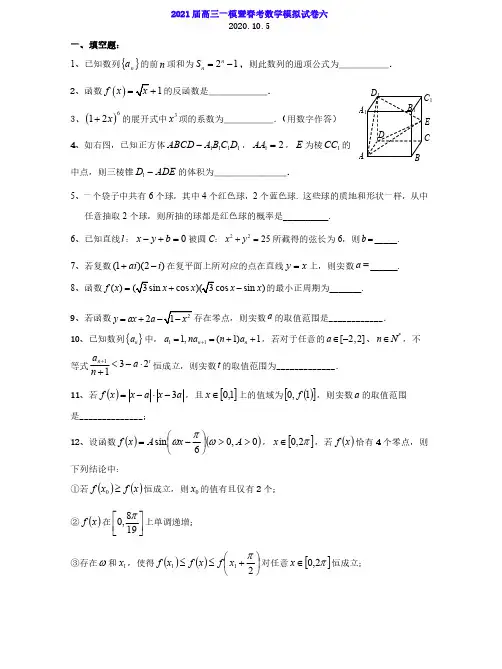 2021届高三一模暨春考数学模拟试卷六
2020.10.5
一、填空题:
1、已知数列{aₙ}的前n项和为Sₙ = 2ⁿ − 1，则此数列的通项公式为___________．
2、函数 f(x) = √x + 1 的反函数是_____________．
3、(1 + 2x)⁶ 的展开式中x³项的系数为___________．(用数字作答)
4、如右图，已知正方体ABCD − A₁B₁C₁D₁，AA₁ = 2，E为棱CC₁的
中点，则三棱锥D₁ − ADE的体积为________________．
D₁
C₁
A₁
B₁
E
D
C
A
B
5、一个袋子中共有6个球，其中4个红色球，2个蓝色球. 这些球的质地和形状一样，从中
任意抽取2个球，则所抽的球都是红色球的概率是__________．
6、已知直线l：x − y + b = 0被圆C：x² + y² = 25所截得的弦长为6，则b = _____．
7、若复数(1 + ai)(2 − i)在复平面上所对应的点在直线y = x上，则实数a = ______．
8、函数f(x) = (√3 sin x + cos x)(√3 cos x − sin x)的最小正周期为_______．
9、若函数y = ax + 2a − √1 − x² 存在零点，则实数a的取值范围是____________．
10、已知数列{aₙ}中，a₁ = 1, naₙ₊₁ = (n + 1)aₙ + 1，若对于任意的a ∈ [−2,2]、n ∈ N*，不
等式 aₙ₊₁/(n + 1) < 3 − a · 2ᵗ 恒成立，则实数t的取值范围为_____________．
11、若f(x) = |x − a| · |x − 3a|，且x ∈ [0,1]上的值域为[0, f(1)]，则实数a的取值范围
是______________；
12、设函数f(x) = A sin(ωx − π/6)(ω > 0, A > 0)，x ∈ [0,2π]，若f(x)恰有4个零点，则
下列结论中：
①若f(x₀) ≥ f(x)恒成立，则x₀的值有且仅有2个；
②f(x)在[0, 8π/19]上单调递增；
③存在ω和x₁，使得f(x₁) ≤ f(x) ≤ f(x₁ + π/2)对任意x ∈ [0,2π]恒成立；